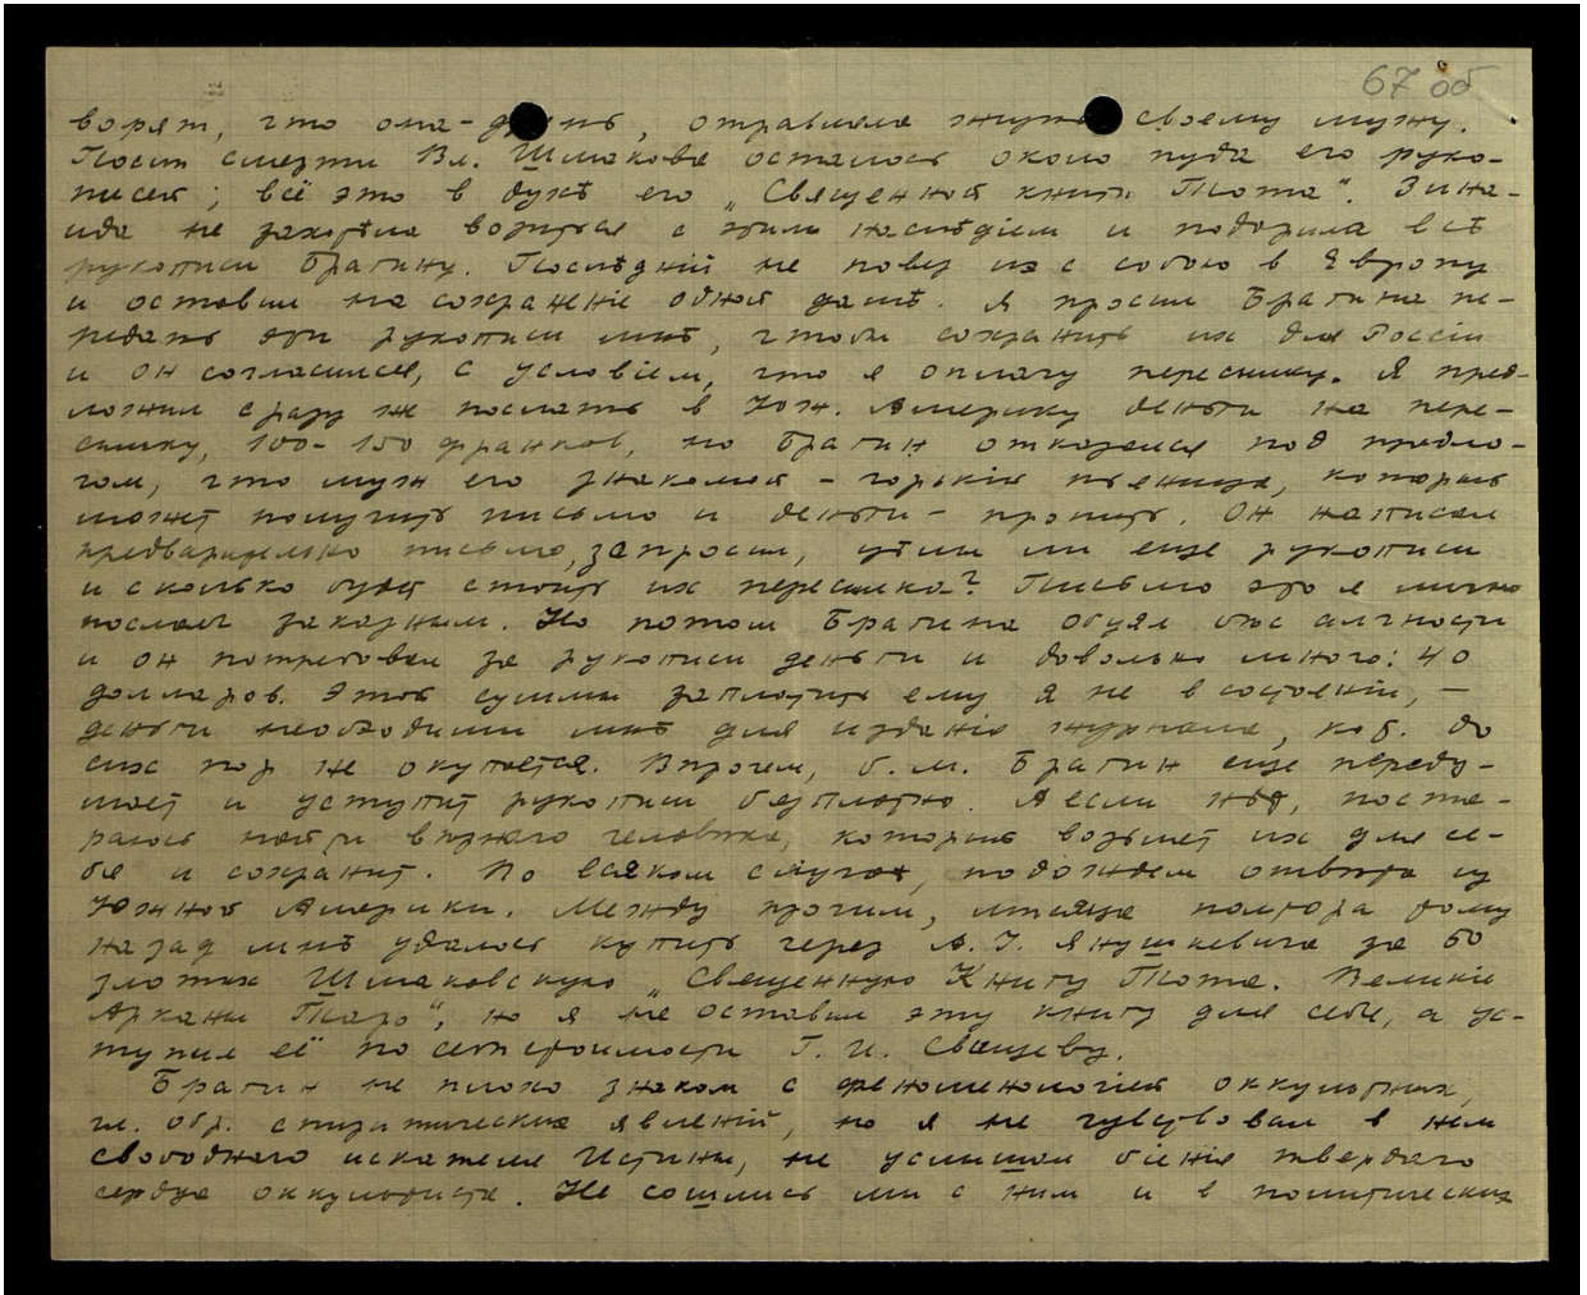 67 об
ворят, что она – д нь, отравляла жизнь своему мужу.
После смерти Вл. Шмакова осталось около пуда его руко-
писей; всё это в духѣ его „Священной книги Тота". Зина-
ида не захотѣла возиться с этим наслѣдием и подарила всѣ
рукописи Брагину. Послѣдній не повез их с собою в Европу
и оставил на сохраненіе одной дамѣ. Я просил Брагина пе-
редать эти рукописи мнѣ, чтобы сохранить их для Россіи
и он согласился, с условіем, что я оплачу пересылку. Я пред-
ложил сразу же послать в Юж. Америку деньги на пере-
сылку, 100–150 франков, но Брагин отказался под предло-
гом, что муж его знакомой – горькій пьяница, который
может получить письмо и деньги – пропить. Он написал
предварительно письмо, запросил, цѣлы ли еще рукописи
и сколько будет стоить их пересылка? Письмо это я лично
послал заказным. Но потом Брагина обуял бѣс алчности
и он потребовал за рукописи деньги и довольно много: 40
долларов. Этой суммы заплатить ему я не в состояніи, –
деньги необходимы мнѣ для изданія журнала, кот. до
сих пор не окупается. Впрочем, б. м. Брагин еще переду-
мает и уступит рукописи безплатно. А если нѣт, поста-
раюсь найти вѣрнаго человѣка, который возьмет их для се-
бя и сохранит. Во всяком случаѣ, подождем отвѣта из
Южной Америки. Между прочим, мѣсяца полтора тому
назад мнѣ удалось купить через А. І. Янушкевича за 50
злотых Шмаковскую „Священную Книгу Тота. Великіе
Арканы Таро", но я не оставил эту книгу для себя, а ус-
тупил её по себѣстоимости Г. И. Свищеву.
Брагин не плохо знаком с феноменологіей оккультных,
гл. обр. спиритических явленій, но я не чувствовал в нем
свободнаго искателя Истины, не услышал біенія твердаго
сердца оккультиста. Не сошлись мы с ним и в политических